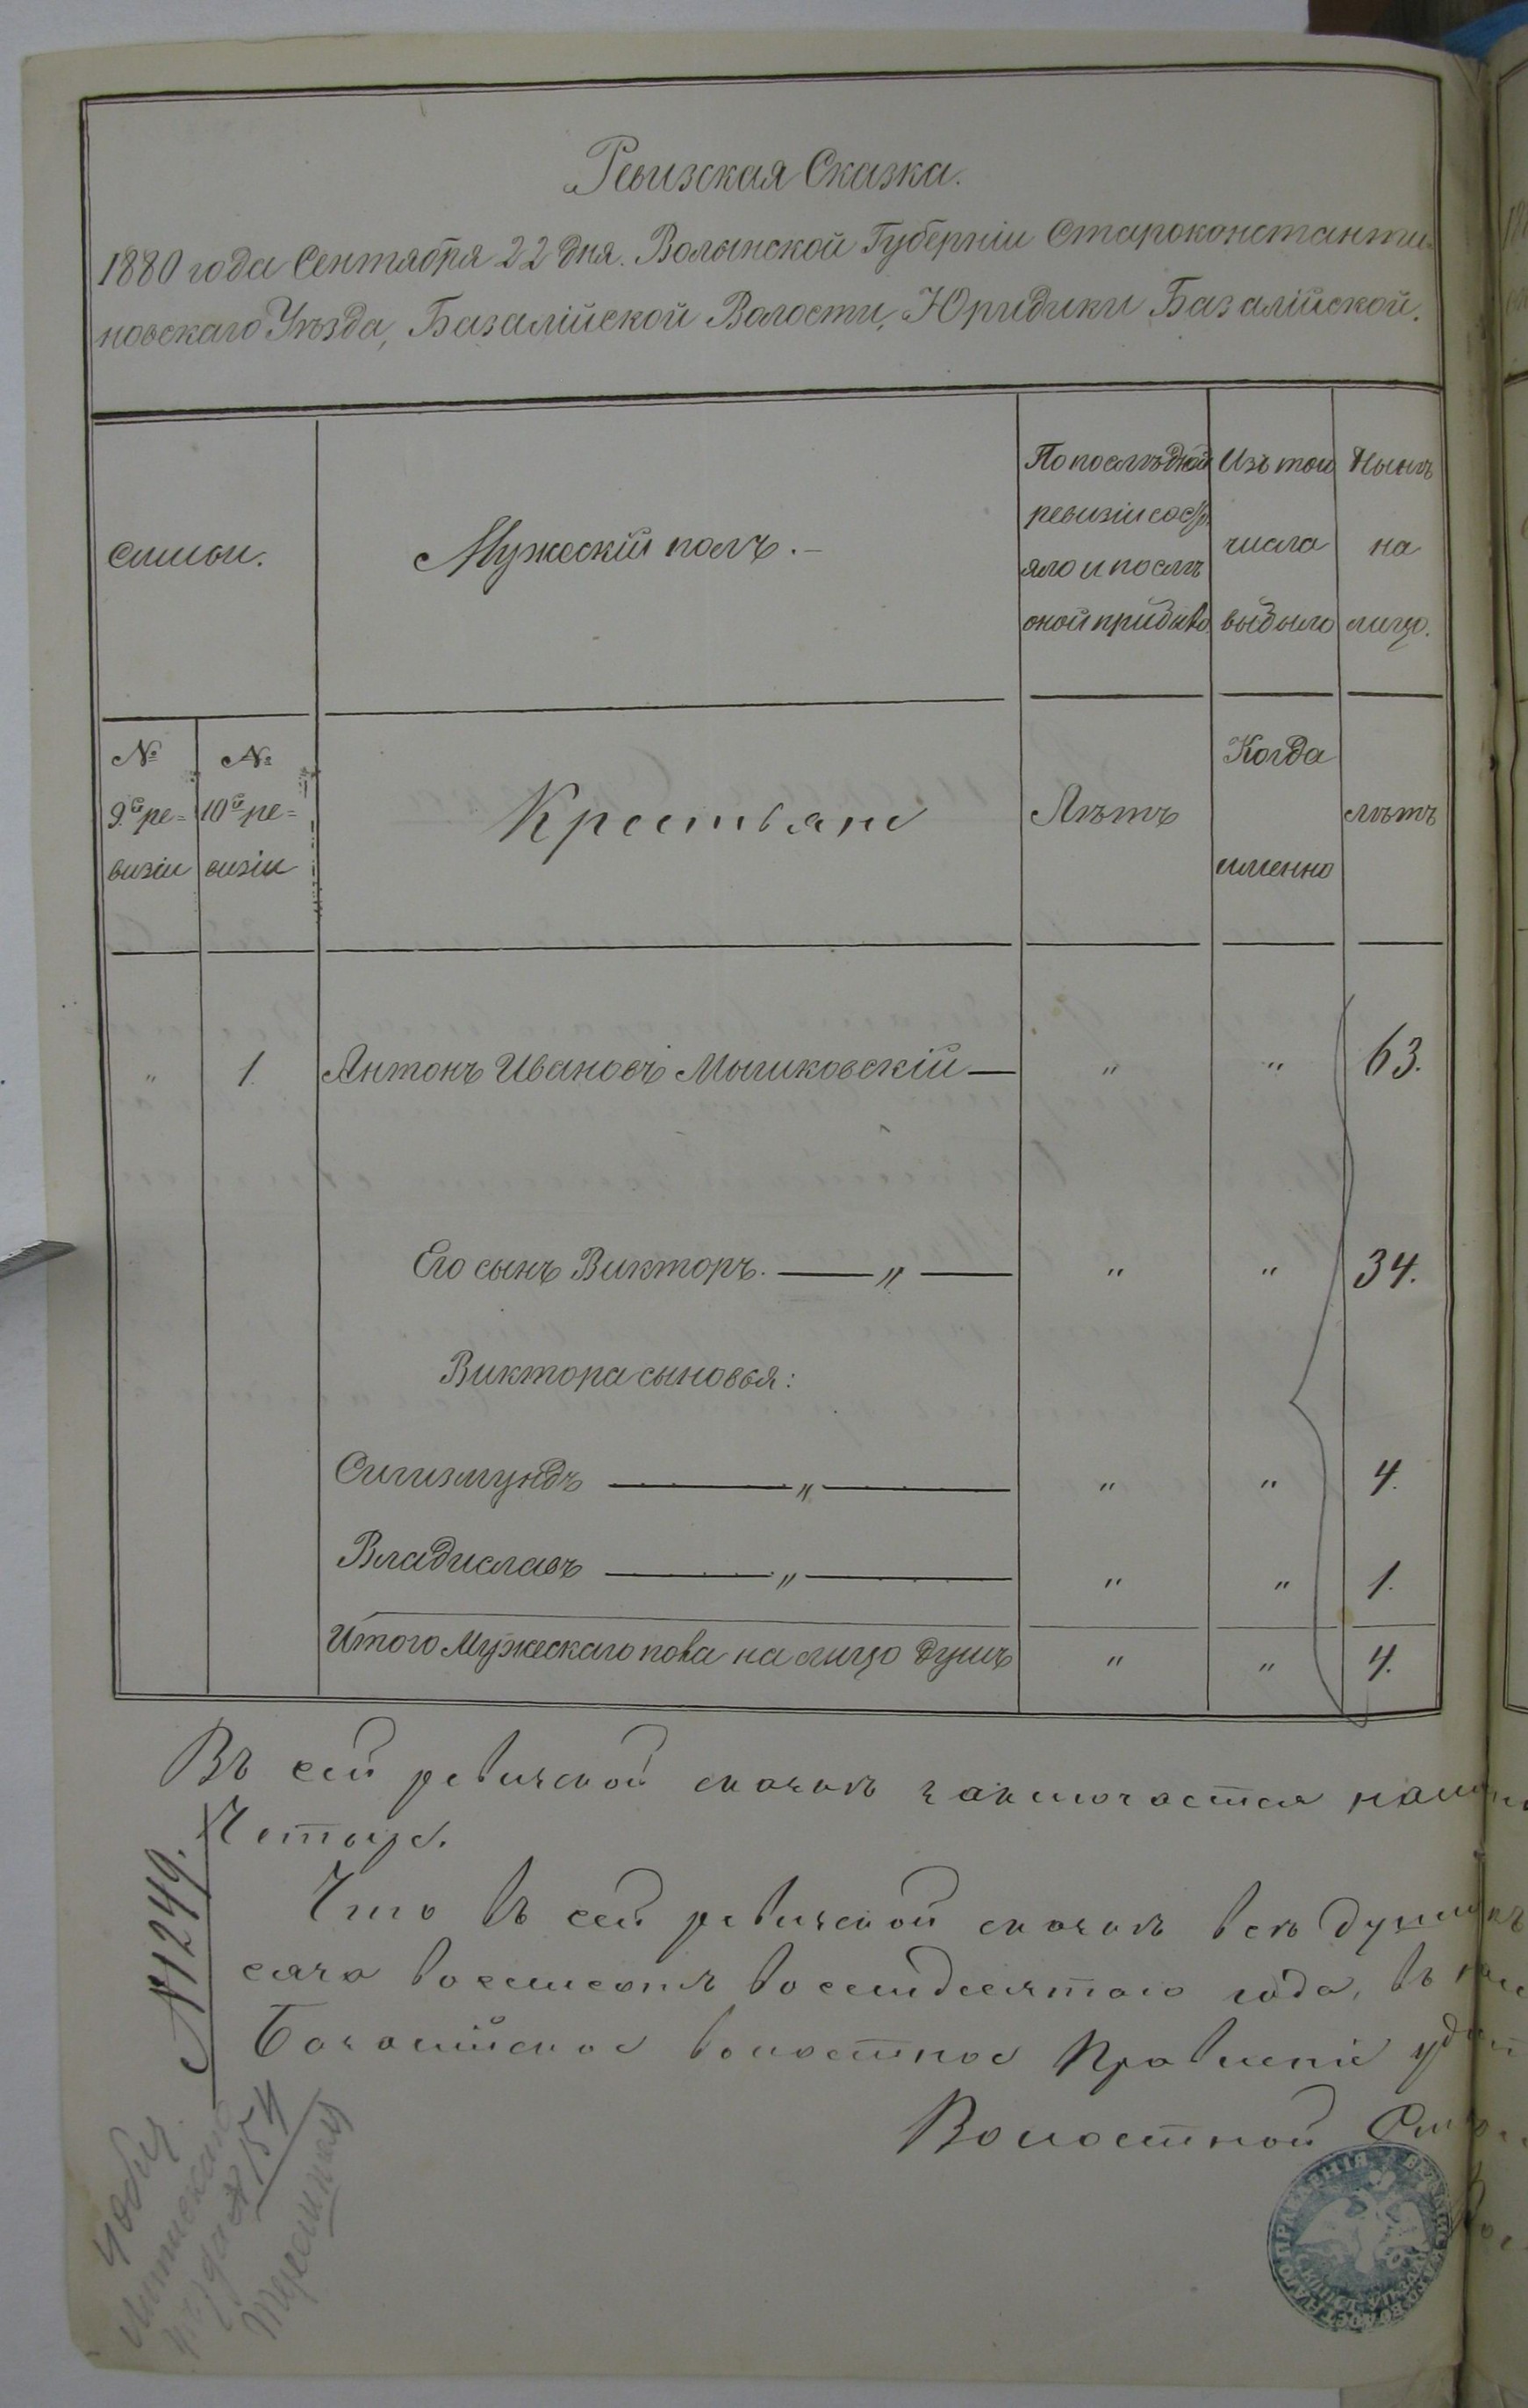 Ревизская Сказка.
1880 года Сентября 22 дня. Волынской Губерніи Староконстанти-
новскаго Уѣзда, Базалійской Волости, Юридики Базалійской.
семьи.
Мужескій полъ.
По послѣдней
ревизіи состо
яло и послѣ
оной прибыло
Изъ того
числа
выбыло
Нынѣ
на
лицо.
№
9й ре=
визіи
№
10й ре=
визіи
Крестьяне
Лѣтъ
Когда
именно
лѣтъ
" 1. Антонъ Ивановъ Мышковскій — " " 63.
Его сынъ Викторъ. — " — " " 34.
Виктора сыновья:
Сигизмундъ — " — " " 4.
Владиславъ — " — " " 1.
Итого Мужескаго пола на лицо душъ " " 4.
Въ сей ревизской сказкѣ заключается
Четыре.
Что въ сей ревизской сказкѣ всѣ души
сяча восемсотъ восемдесятаго года, въ
Базалійское волостное Правленіе
Волостной
№1249.
№154